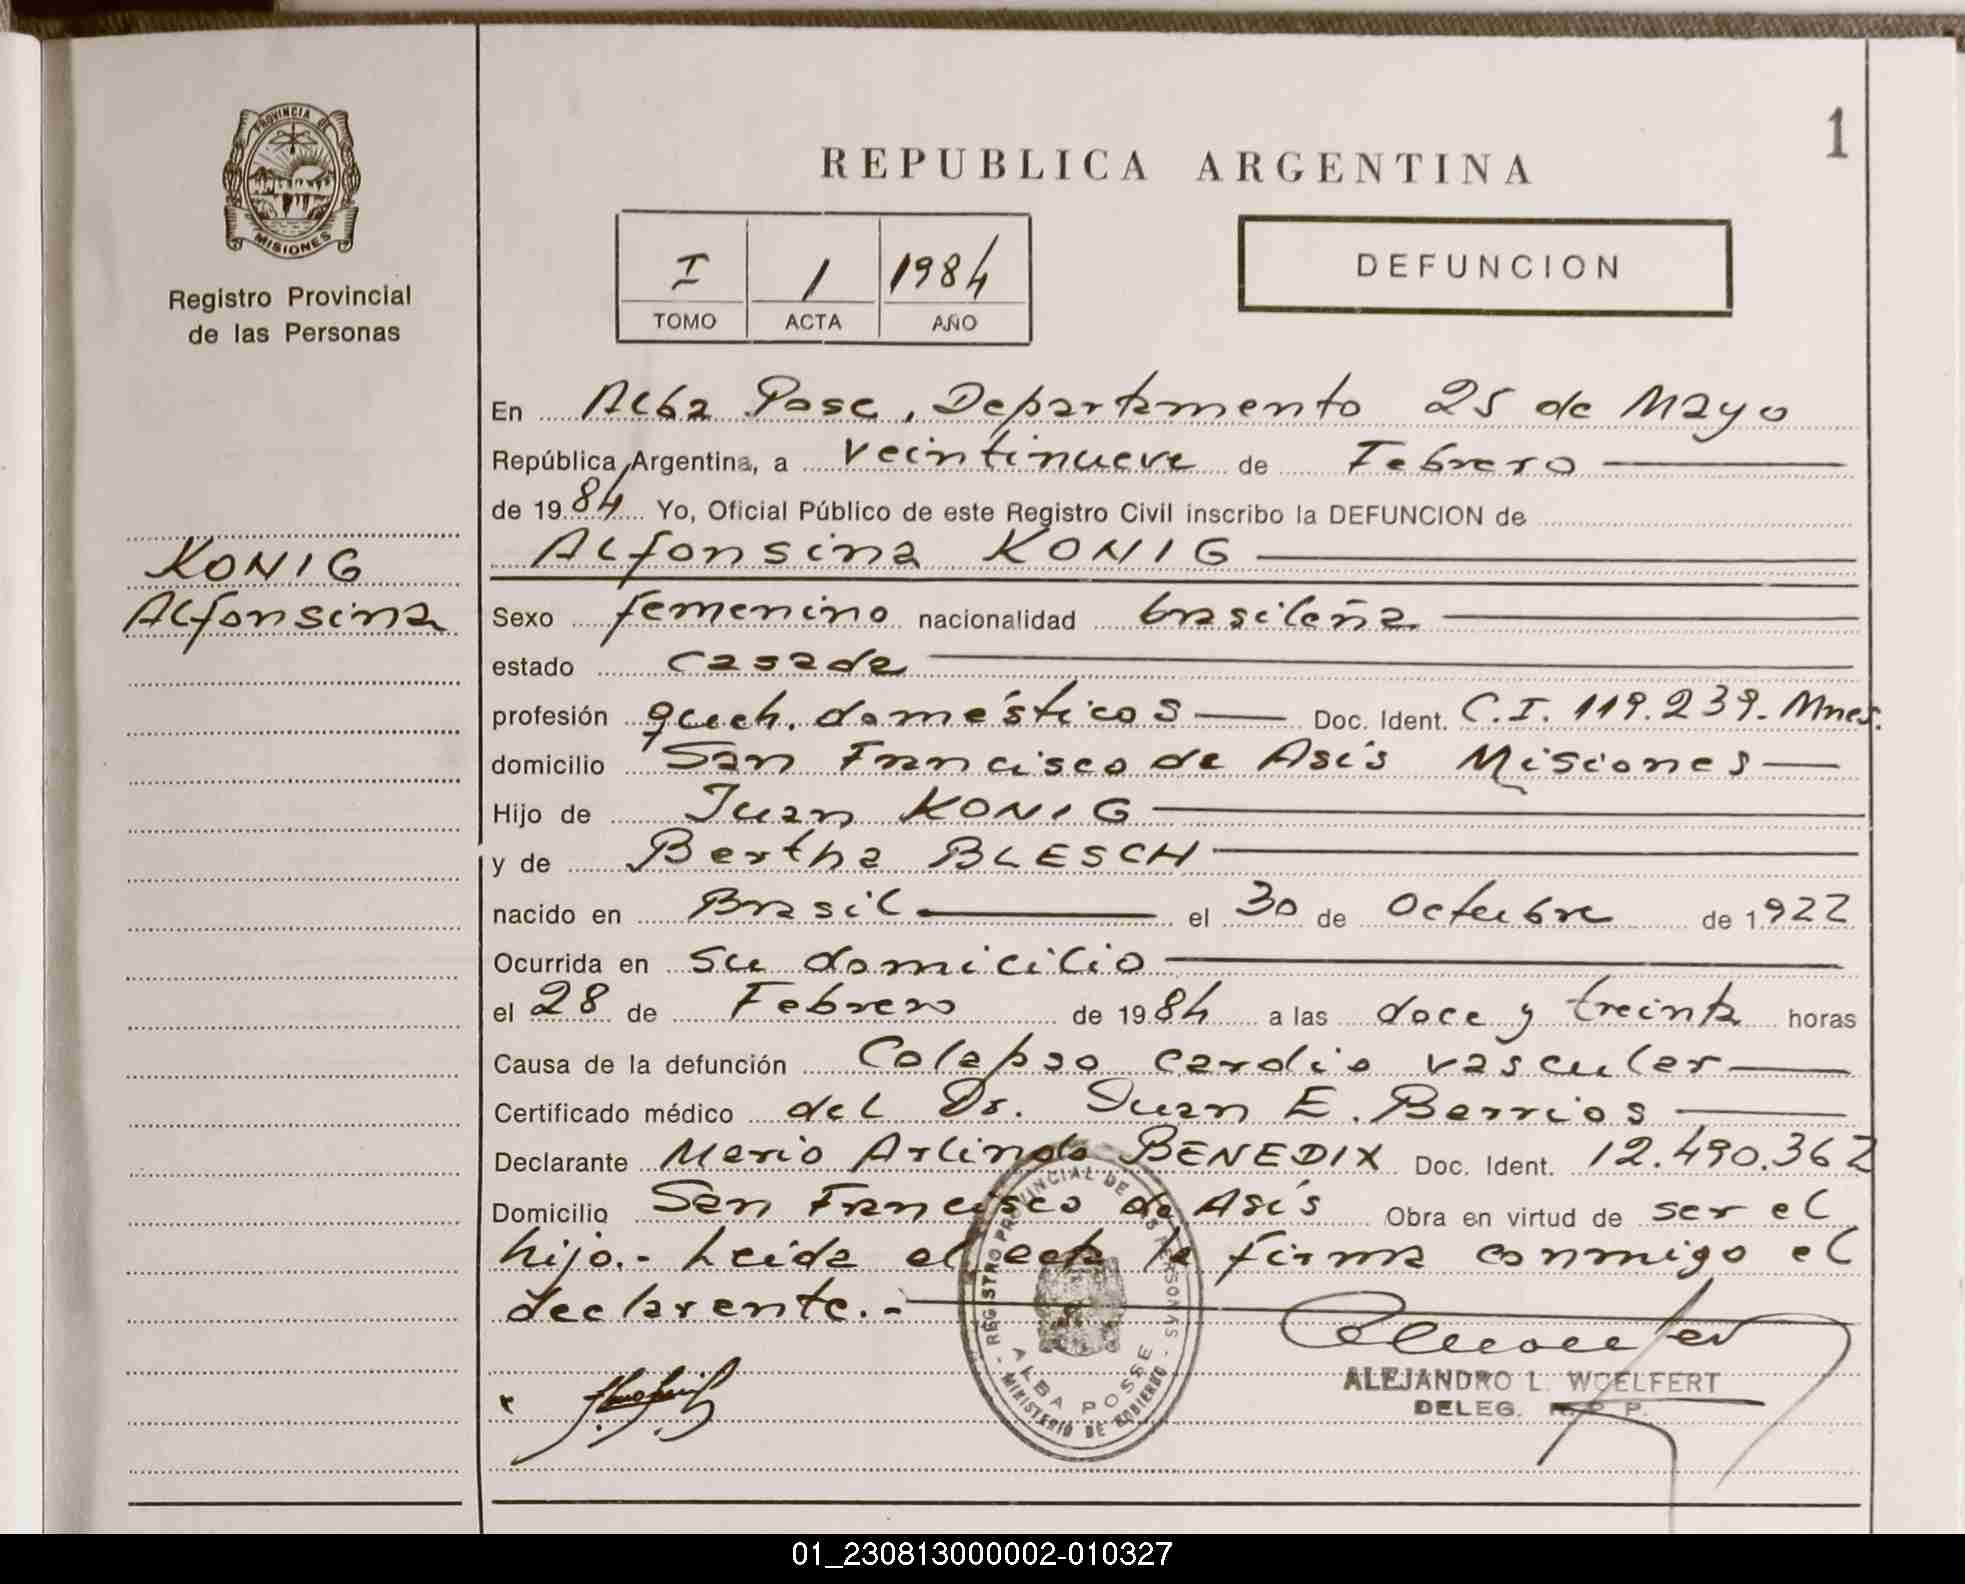 PROVINCIA DE
MISIONES
Registro Provincial
de las Personas
KONIG
Alfonsina
1
REPUBLICA ARGENTINA
I 1 1984
TOMO ACTA AÑO
DEFUNCION
En Alba Pose, Departamento 25 de Mayo
República Argentina, a veintinueve de Febrero
de 1984 Yo, Oficial Público de este Registro Civil inscribo la DEFUNCION de
Alfonsina KONIG
Sexo femenino nacionalidad brasileña
estado casada
profesión queh. domésticos Doc. Ident. C.I. 119.239. Mnes.
domicilio San Francisco de Asís Misiones
Hijo de Juan KONIG
y de Bertha BLESCH
nacido en Brasil el 30 de Octubre de 1922
Ocurrida en su domicilio
el 28 de Febrero de 1984 a las doce y treinta horas
Causa de la defunción Colapso cardio vascular
Certificado médico del Dr. Juan E. Berrios
Declarante Mario Arlindo BENEDIX Doc. Ident. 12.490.362
Domicilio San Francisco de Asís Obra en virtud de ser el
hijo.- Leida el acta la firma conmigo el
declarante.-
REGISTRO PROVINCIAL DE LAS PERSONAS
ALBA POSSE
MINISTERIO DE GOBIERNO
ALEJANDRO L. WOELFERT
DELEG. R. P. P.
01_230813000002-010327